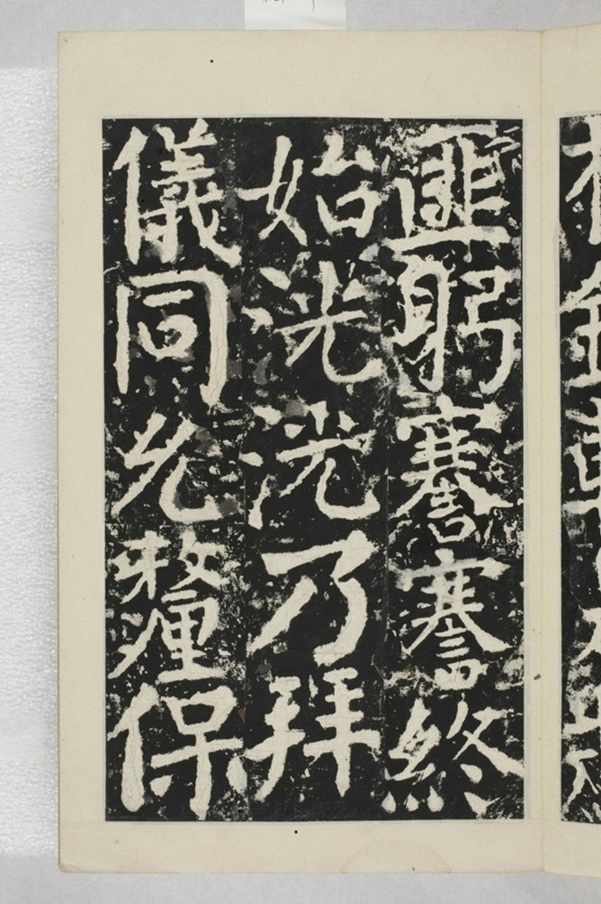 匪躬謇謇終
始洸洸乃拜
儀同允釐保